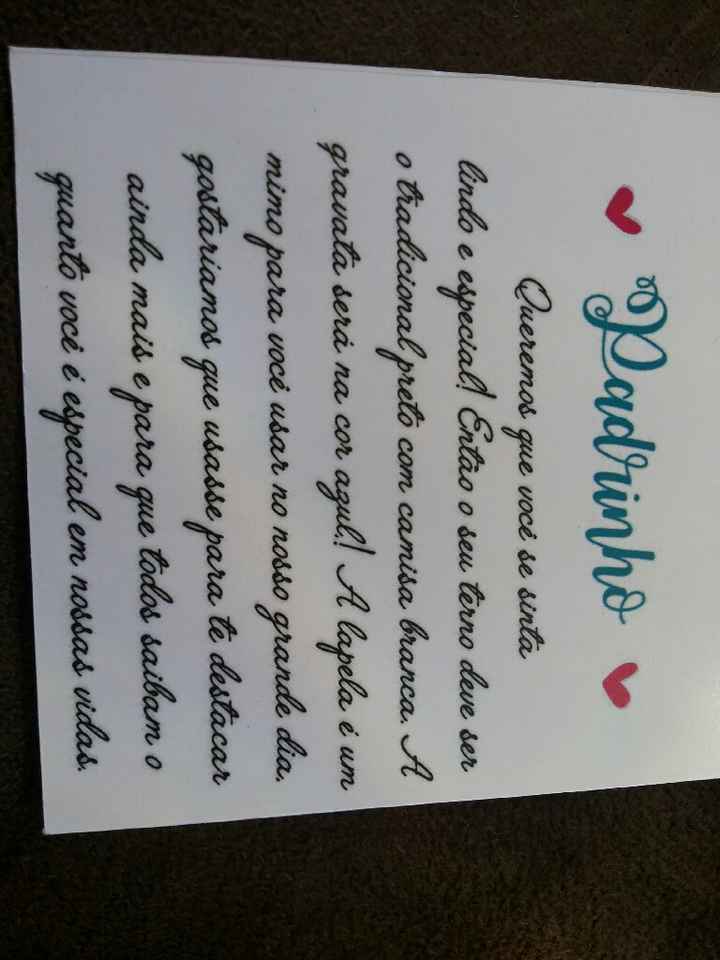 Padrinho
Queremos que você se sinta
lindo e especial! Então o seu terno deve ser
o tradicional preto com camisa branca. A
gravata será na cor azul! A lapela é um
mimo para você usar no nosso grande dia,
gostaríamos que usasse para te destacar
ainda mais e para que todos saibam o
quanto você é especial em nossas vidas.